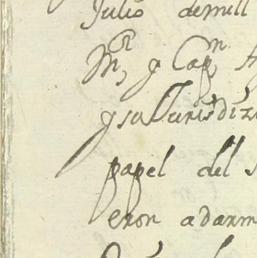 Julio demill
Mr, y Capn,
y su Jurisdiz
papel del s
eron adarm